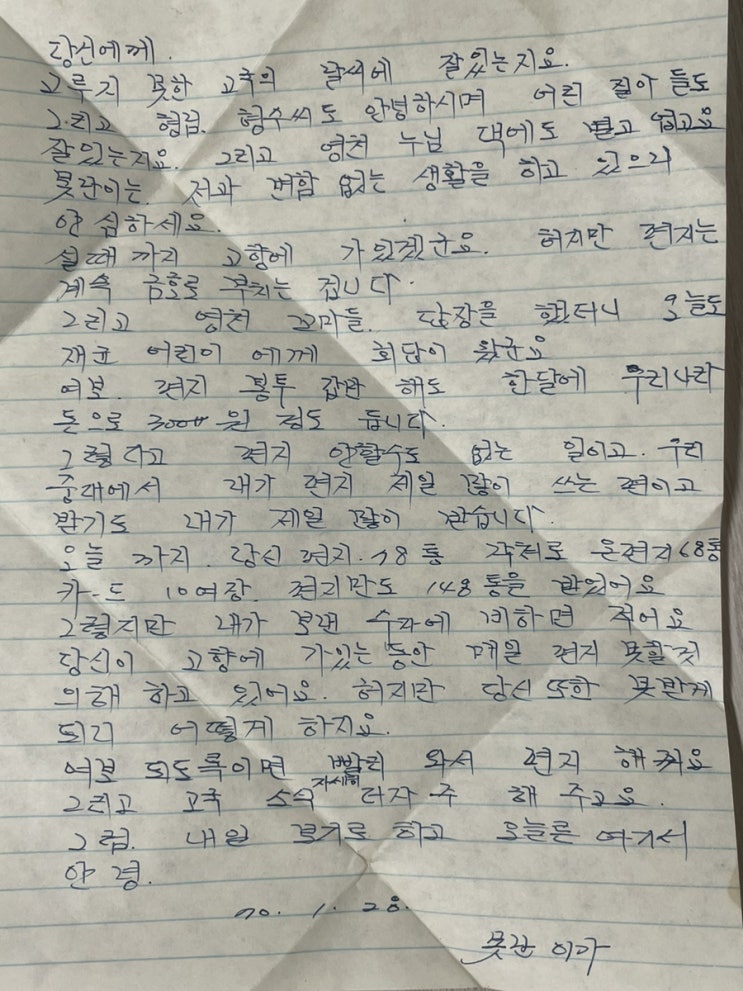 당신에께.
고루지 못한 고국의 날씨에 잘있는지요.
그리고 형님. 형수씨도 안녕하시며 어린 질아 들도
잘있는지요. 그리고 영천 누님 댁에도 별고 없고요
못난이는. 전과 변함 없는 생활을 하고 있으니
안심하세요.
설때 까지 고향에 가있겟군요. 허지만 편지는
계속 금호로 부치는 겁니다.
그리고 영천 꼬마들. 답장을 했더니 오늘도
재균 어린이 에께 회답이 왔군요
여보. 편지 봉투 값만 해도 한달에 우리나라
돈으로 3000원 정도 듭니다.
그렇다고 편지 안할수도 없는 일이고. 우리
중대에서 내가 편지 제일 많이 쓰는 편이고
받기도 내가 제일 많이 받습니다.
오늘 까지. 당신 편지. 78통 각처로 온편지 68통
카-드 10여장. 편지만도 148통을 받았어요
그렇지만 내가 보낸 수자에 비하면 적어요
당신이 고향에 가있는 동안 매일 편지 못할것
의해 하고 있어요. 허지만 당신 또한 못받게
되니 어떻게 하지요.
여보 되도록이면 빨리 와서 편지 해줘요
그리고 고국 소식 자세히 더자주 해 주고요.
그럼. 내일 보기로 하고 오늘은 여기서
안령.
70. 1. 28.
못난 이가